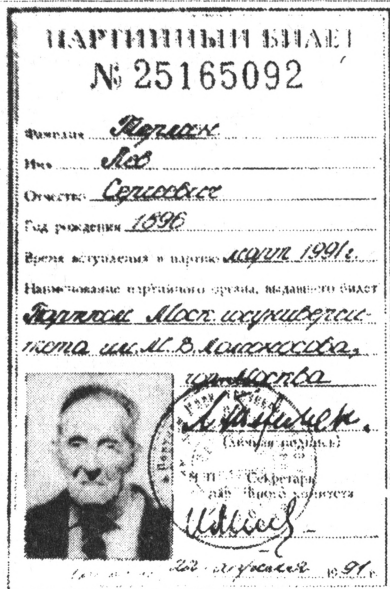 ПАРТИЙНЫЙ БИЛЕТ
№ 25165092
Фамилия Термен
Имя Лев
Отчество Сергеевич
Год рождения 1896
Время вступления в партию март 1991 г.
Наименование партийного органа, выдавшего билет
Партком Моск. госуниверси-
тета им. М. В. Ломоносова,
гор. Москва
Л. Термен.
(личная подпись)
М. П. Секретарь
партийного комитета
апреля 1991 г.